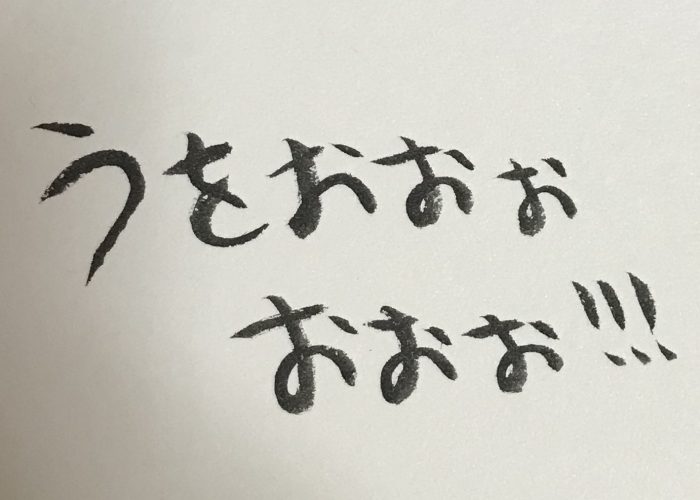 うをおおぉ
おおぉ!!!